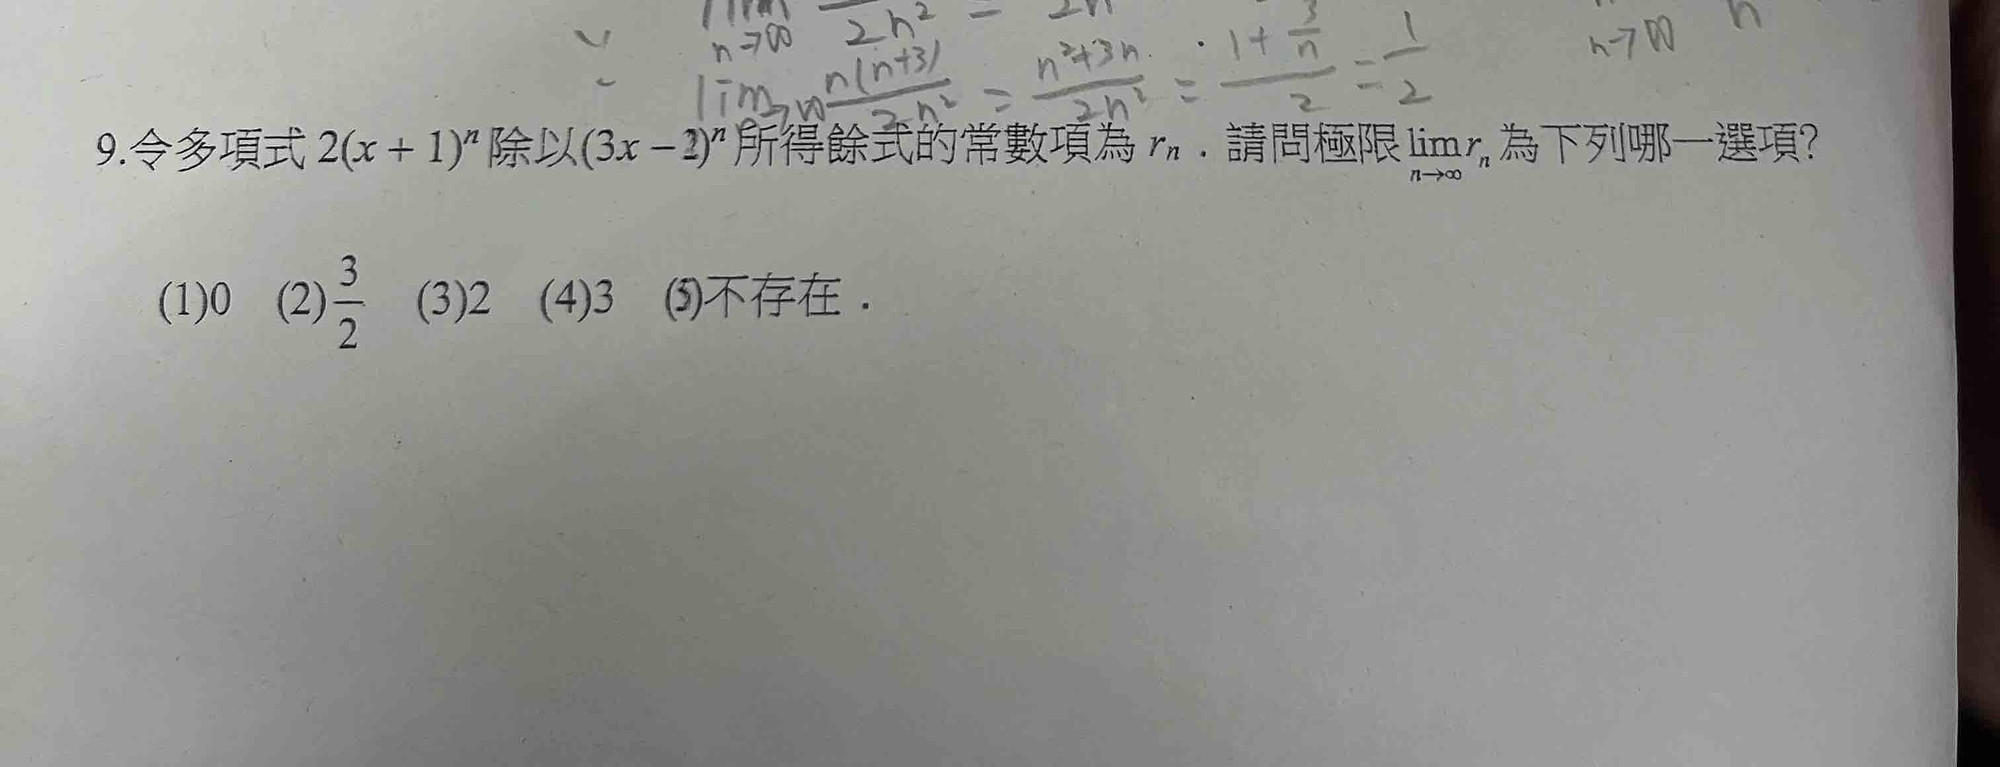 n→∞ 2n² = 2n n→∞ n
lim n→∞ n(n+3)/2n² = n²+3n/2n² = 1+3/n/2 = 1/2
9.令多項式 2(x + 1)ⁿ 除以(3x − 2)ⁿ 所得餘式的常數項為 rₙ．請問極限 lim n→∞ rₙ 為下列哪一選項?
(1)0 (2)3/2 (3)2 (4)3 (5)不存在．